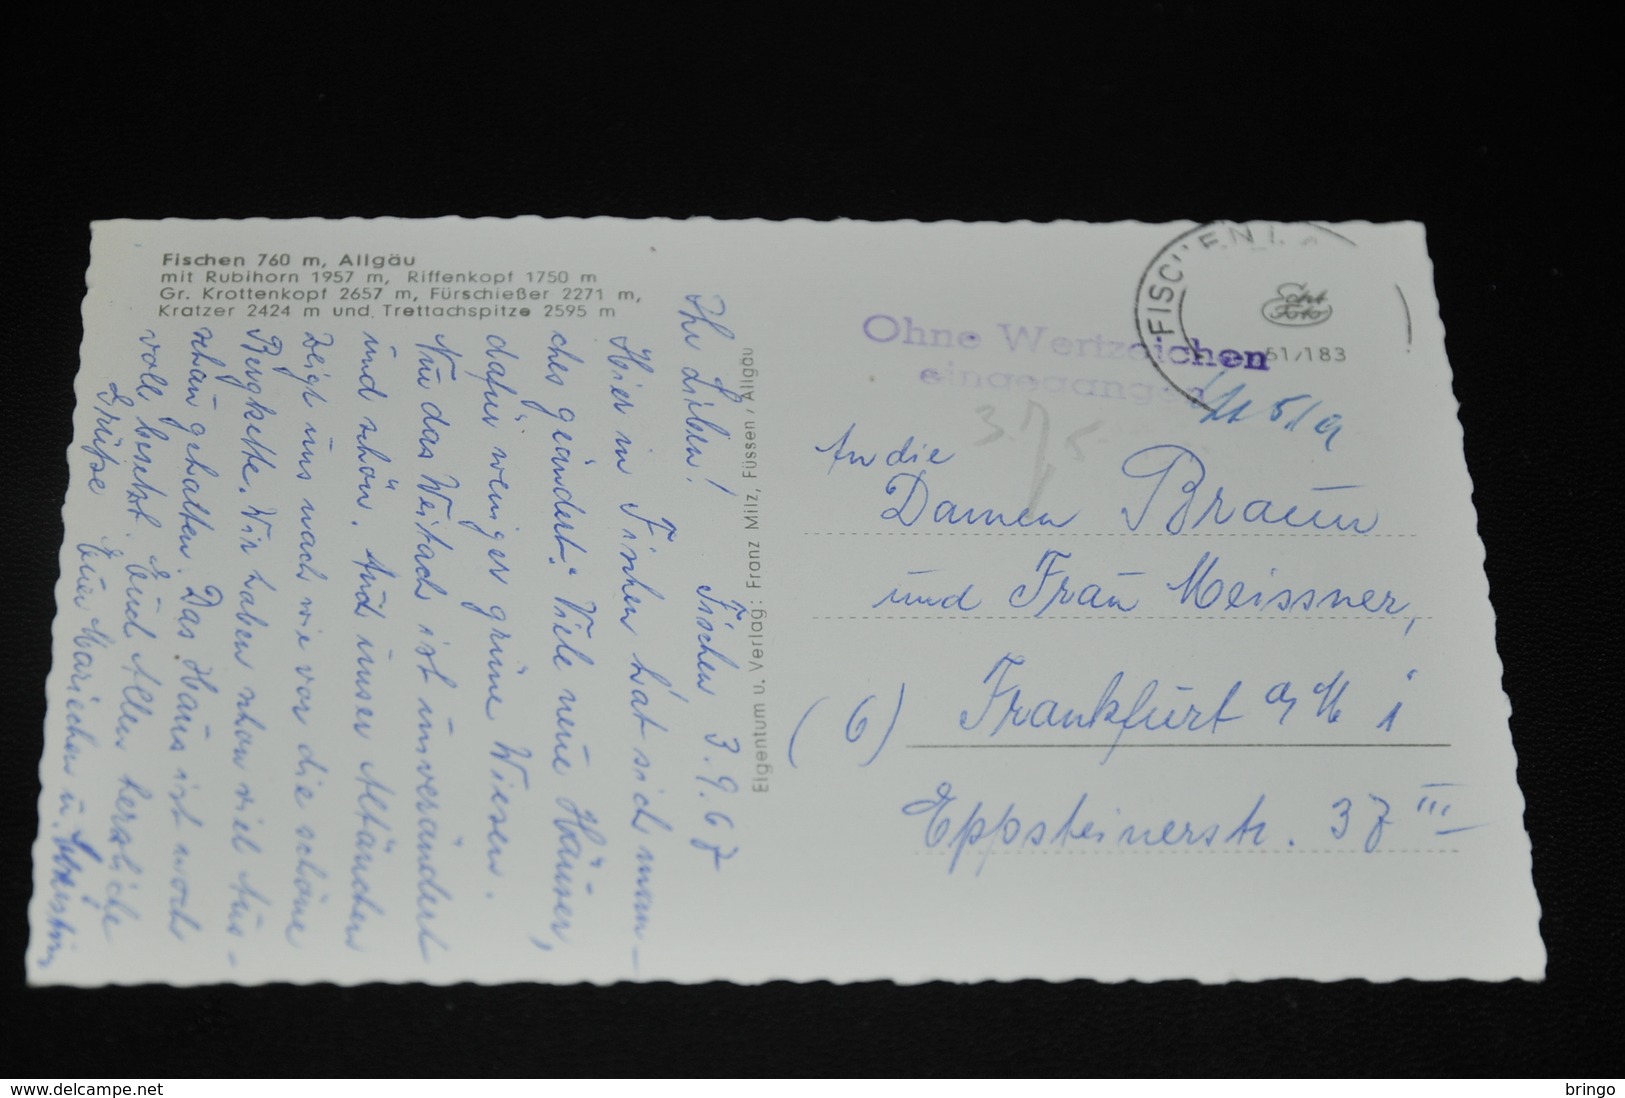 Fischen 760 m, Allgäu
mit Rubihorn 1957 m, Riffenkopf 1750 m
Gr. Krottenkopf 2657 m, Fürschießer 2271 m,
Kratzer 2424 m und Trettachspitze 2595 m
Fischen, 3.9.67
Ihr Lieben!
Hier in Fischen hat sich man-
ches geändert. Viele neue Häuser,
dafür weniger grüne Wiesen.
Nur das Weitach ist unverändert
und schön. Auch unser Altärchen
zeigt uns nach wie vor die schöne
Bergkette. Wir haben schon viel Aus-
schau gehalten. Das Haus ist noch
voll besetzt. Euch Allen herzliche
Grüße Eure Mariechen u.
Eigentum u. Verlag: Franz Milz, Füssen / Allgäu
FISCHEN I.
Echt
Foto
51/183
Ohne Wertzeichen
eingegangen
An die
Damen Braun
und Frau Meissner,
(6) Frankfurt a/M 1
Eppsteinerstr. 37 III
delcampe.net
bringo